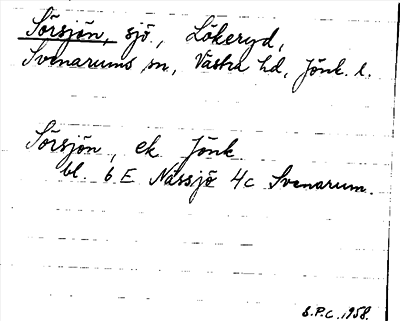 Sörsjön, sjö, Lökeryd,
Svenarums sn, Västra hd, Jönk. l.
Sörsjön, ek Jönk
bl. 6 E Nässjö 4c Svenarum.
S.P.C. 1958.